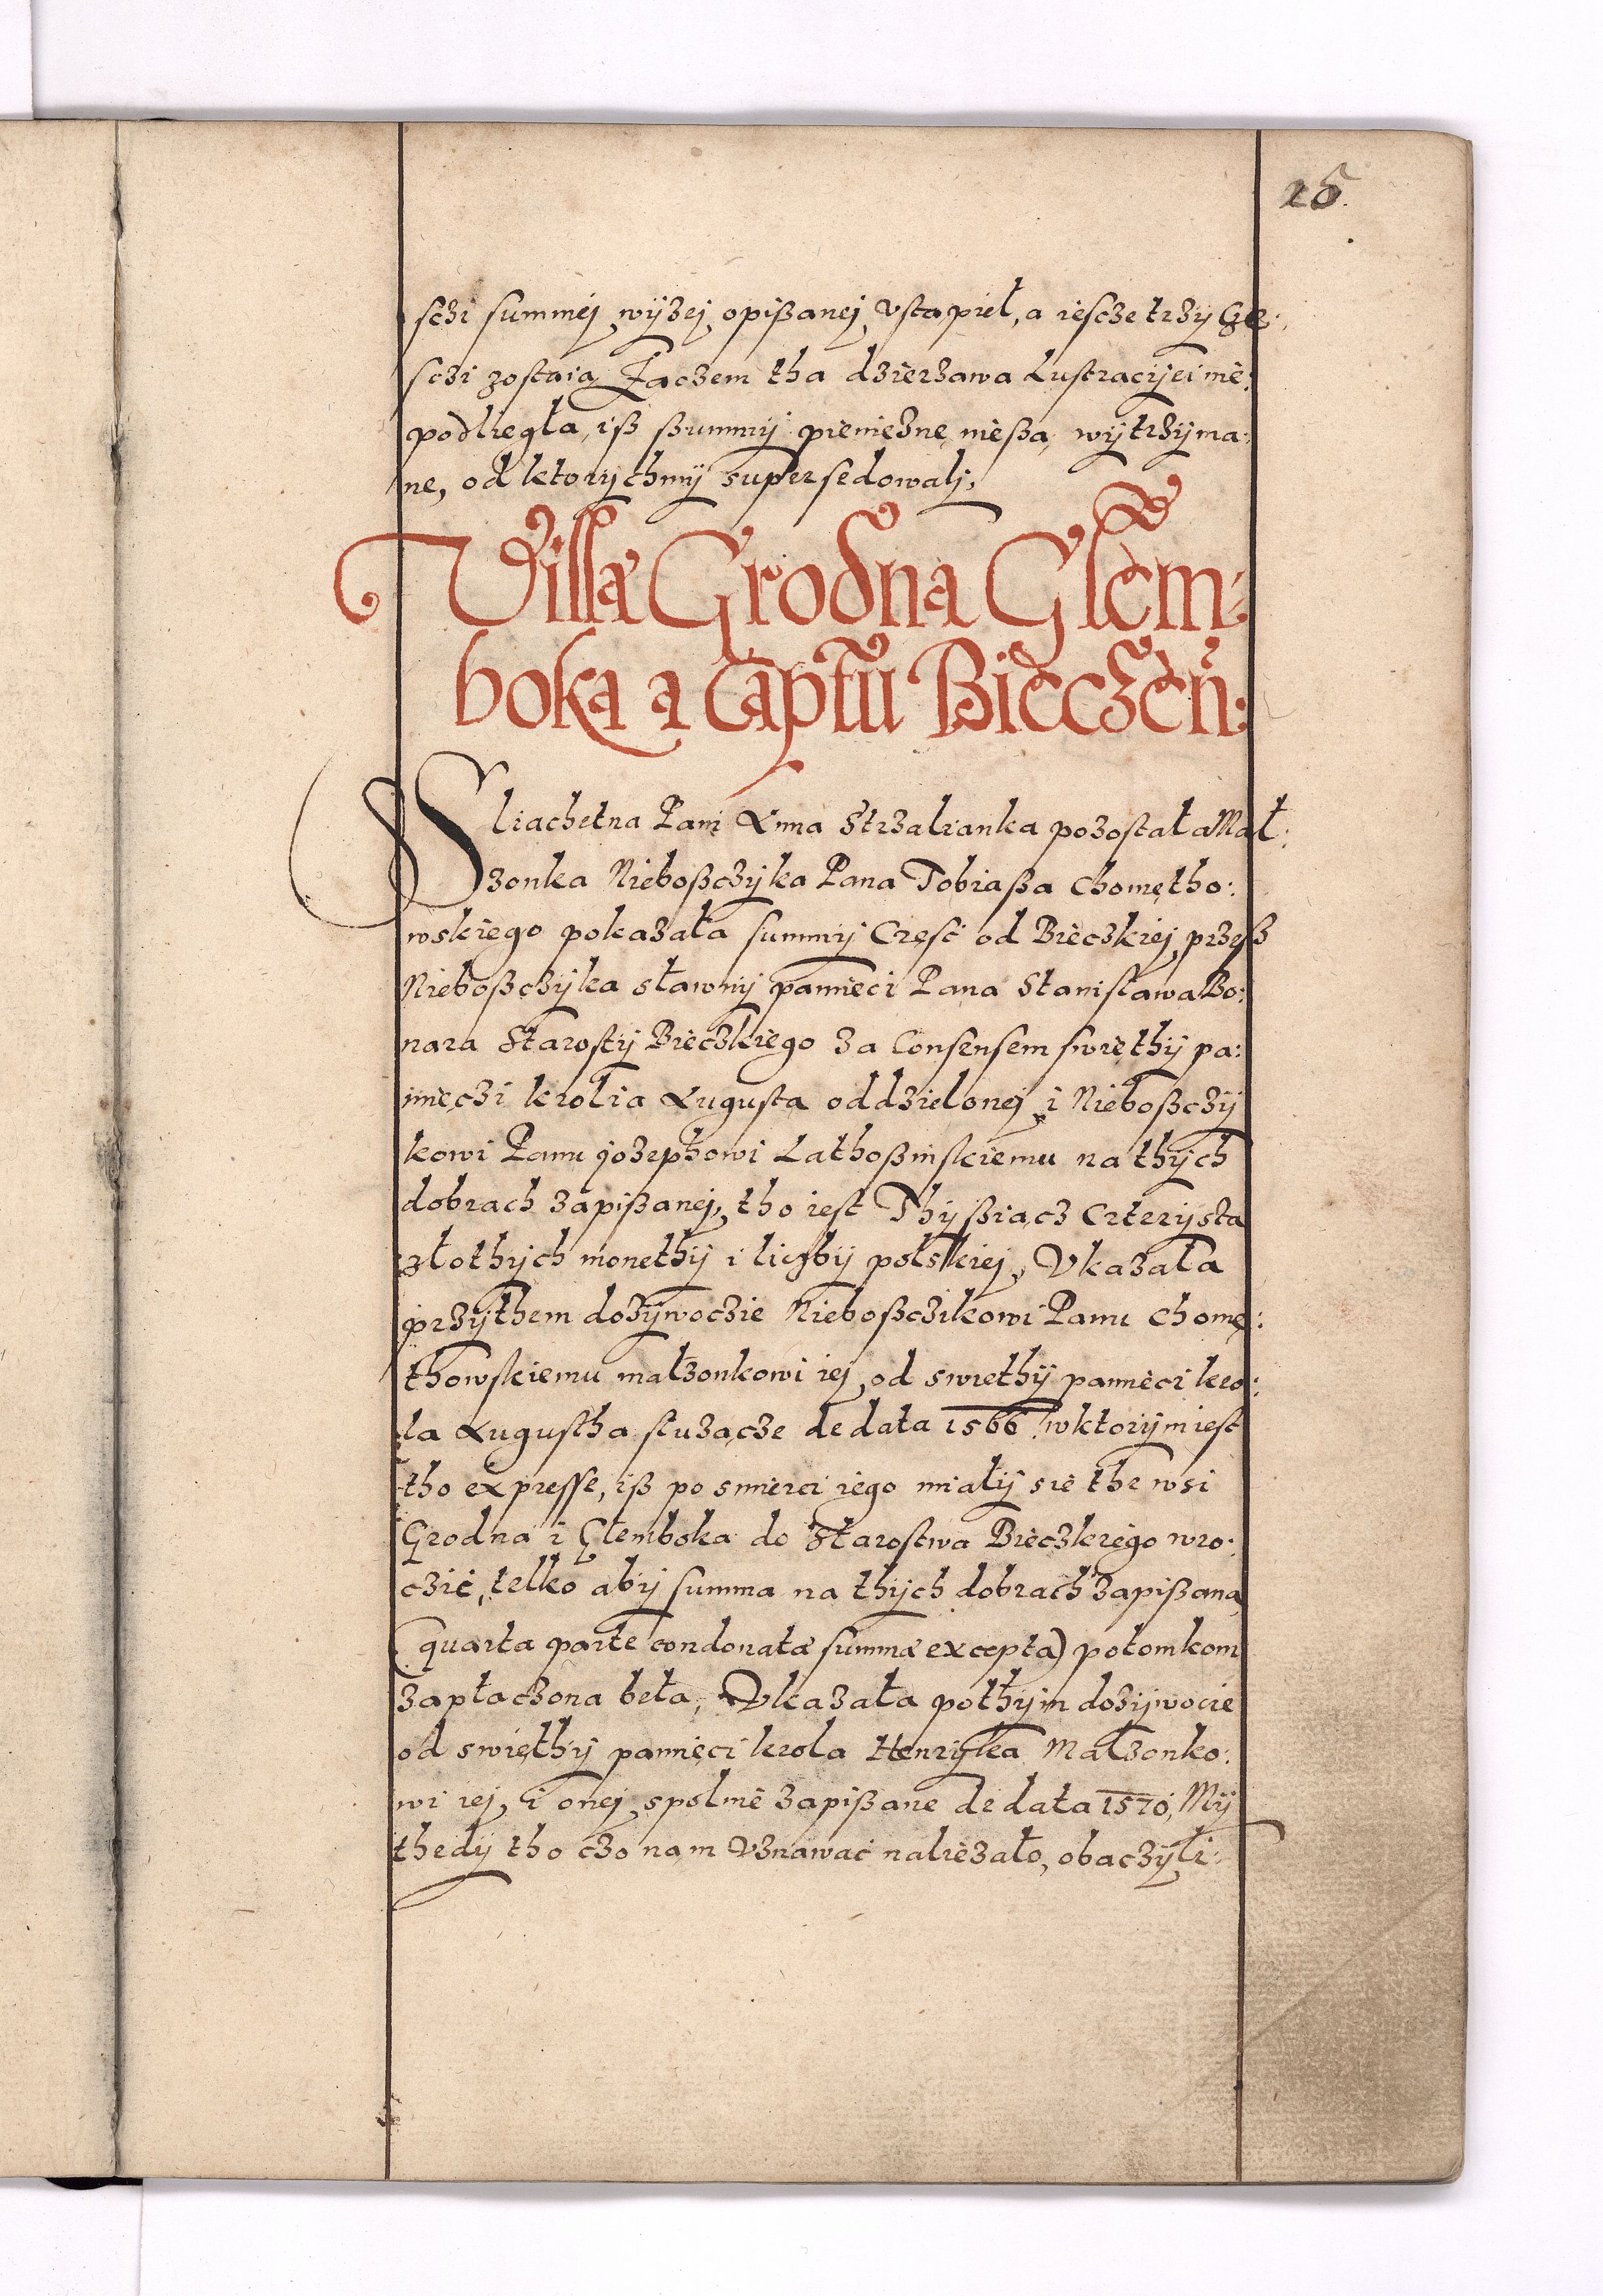 25.
sczi summéj wÿzej opißanej, vstapieł, a iescze trzÿ Cżę:
sczi zostaią Zaczem tha dzierzawa Lustracÿei nie:
podliegła, iß ßummÿ pieniezne nießa wÿtrzÿma:
ne, od ktorÿchmÿ supersedowalj,
Villa Grodna Glem:
boka a Captu Biecżeń:
Sliachetna Pani Anna Strzalianka pozostała Mał:
zonka Nieboßczÿka Pana Tobiaßa Chomętho:
wskiego pokazała summÿ Częsć od Bieczkiej, przeß
Nieboßczÿka sławnÿ pamięci Pana Stanisława Bo:
nara Starostÿ Bieczkiego za Consensem swiethÿ pa:
mięczi krolia Augusta oddzielonej i Nieboßczÿ
kowi Panu jozephowi Lathoßinskiemu na thÿch
dobrach zapißanej, tho iest Thÿßiącz Czterÿsta
złothÿch monethÿ i liczbÿ polskiej, Vkazała
przÿthem dozÿwoczie Nieboßczikowi Panu Chomę:
thowskiemu małzonkowi iej, od swiethÿ pamieci kro:
la Augustha słuzącze de data 1566 w ktorÿm iest
tho expresse, iß po smierci iego miałÿ sie the wsi
Grodna i Głemboka do Starostwa Bieczkiego wro:
czić, telko abÿ summa na thÿch dobrach zapißana
(quarta parte condonatæ summæ excepta) potomkom
zapłaczona beła, Vkazała pothÿm dozÿwocie
od swiethÿ pamięci krola Henrÿka Małzonko:
wi iej, i onej spolnie zapißane de data 1570, Mÿ
thedÿ tho czo nam Vznawać naliezało, obaczÿli: